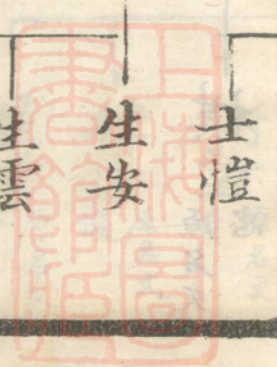 士愷
生安
生雲
上海圖書館藏